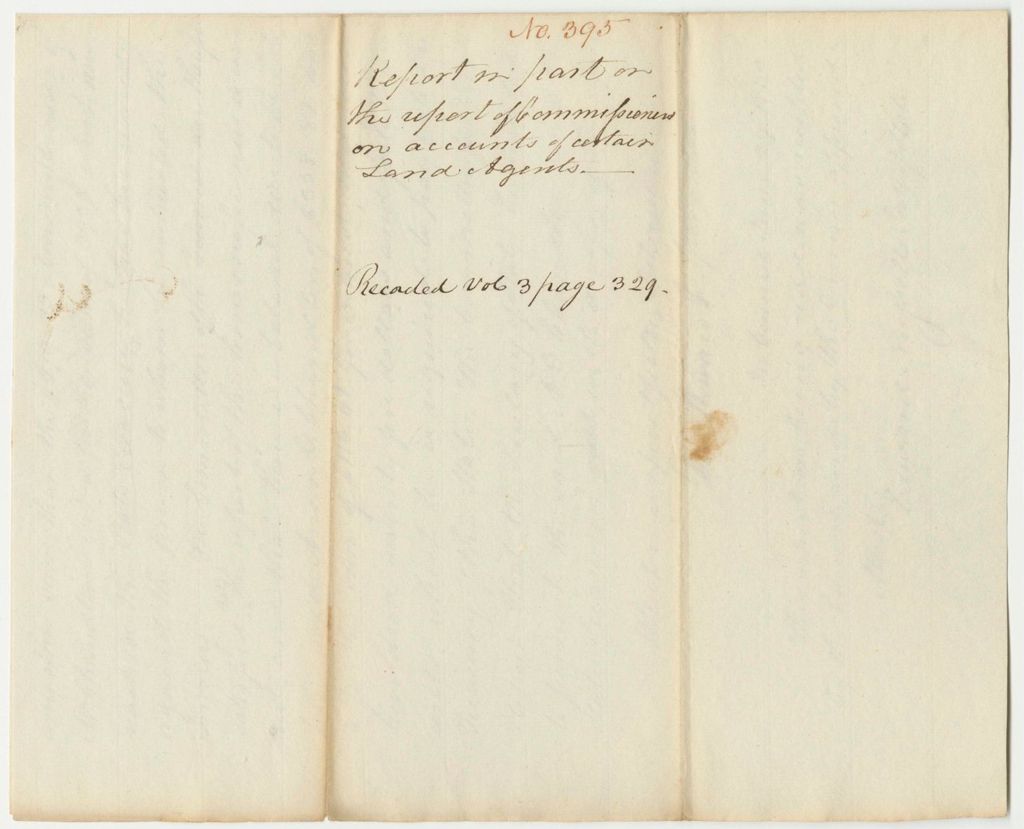 No. 395
Report in part on
the report of Commissioners
on accounts of certain
Land Agents.
Recorded Vol 3 page 329.